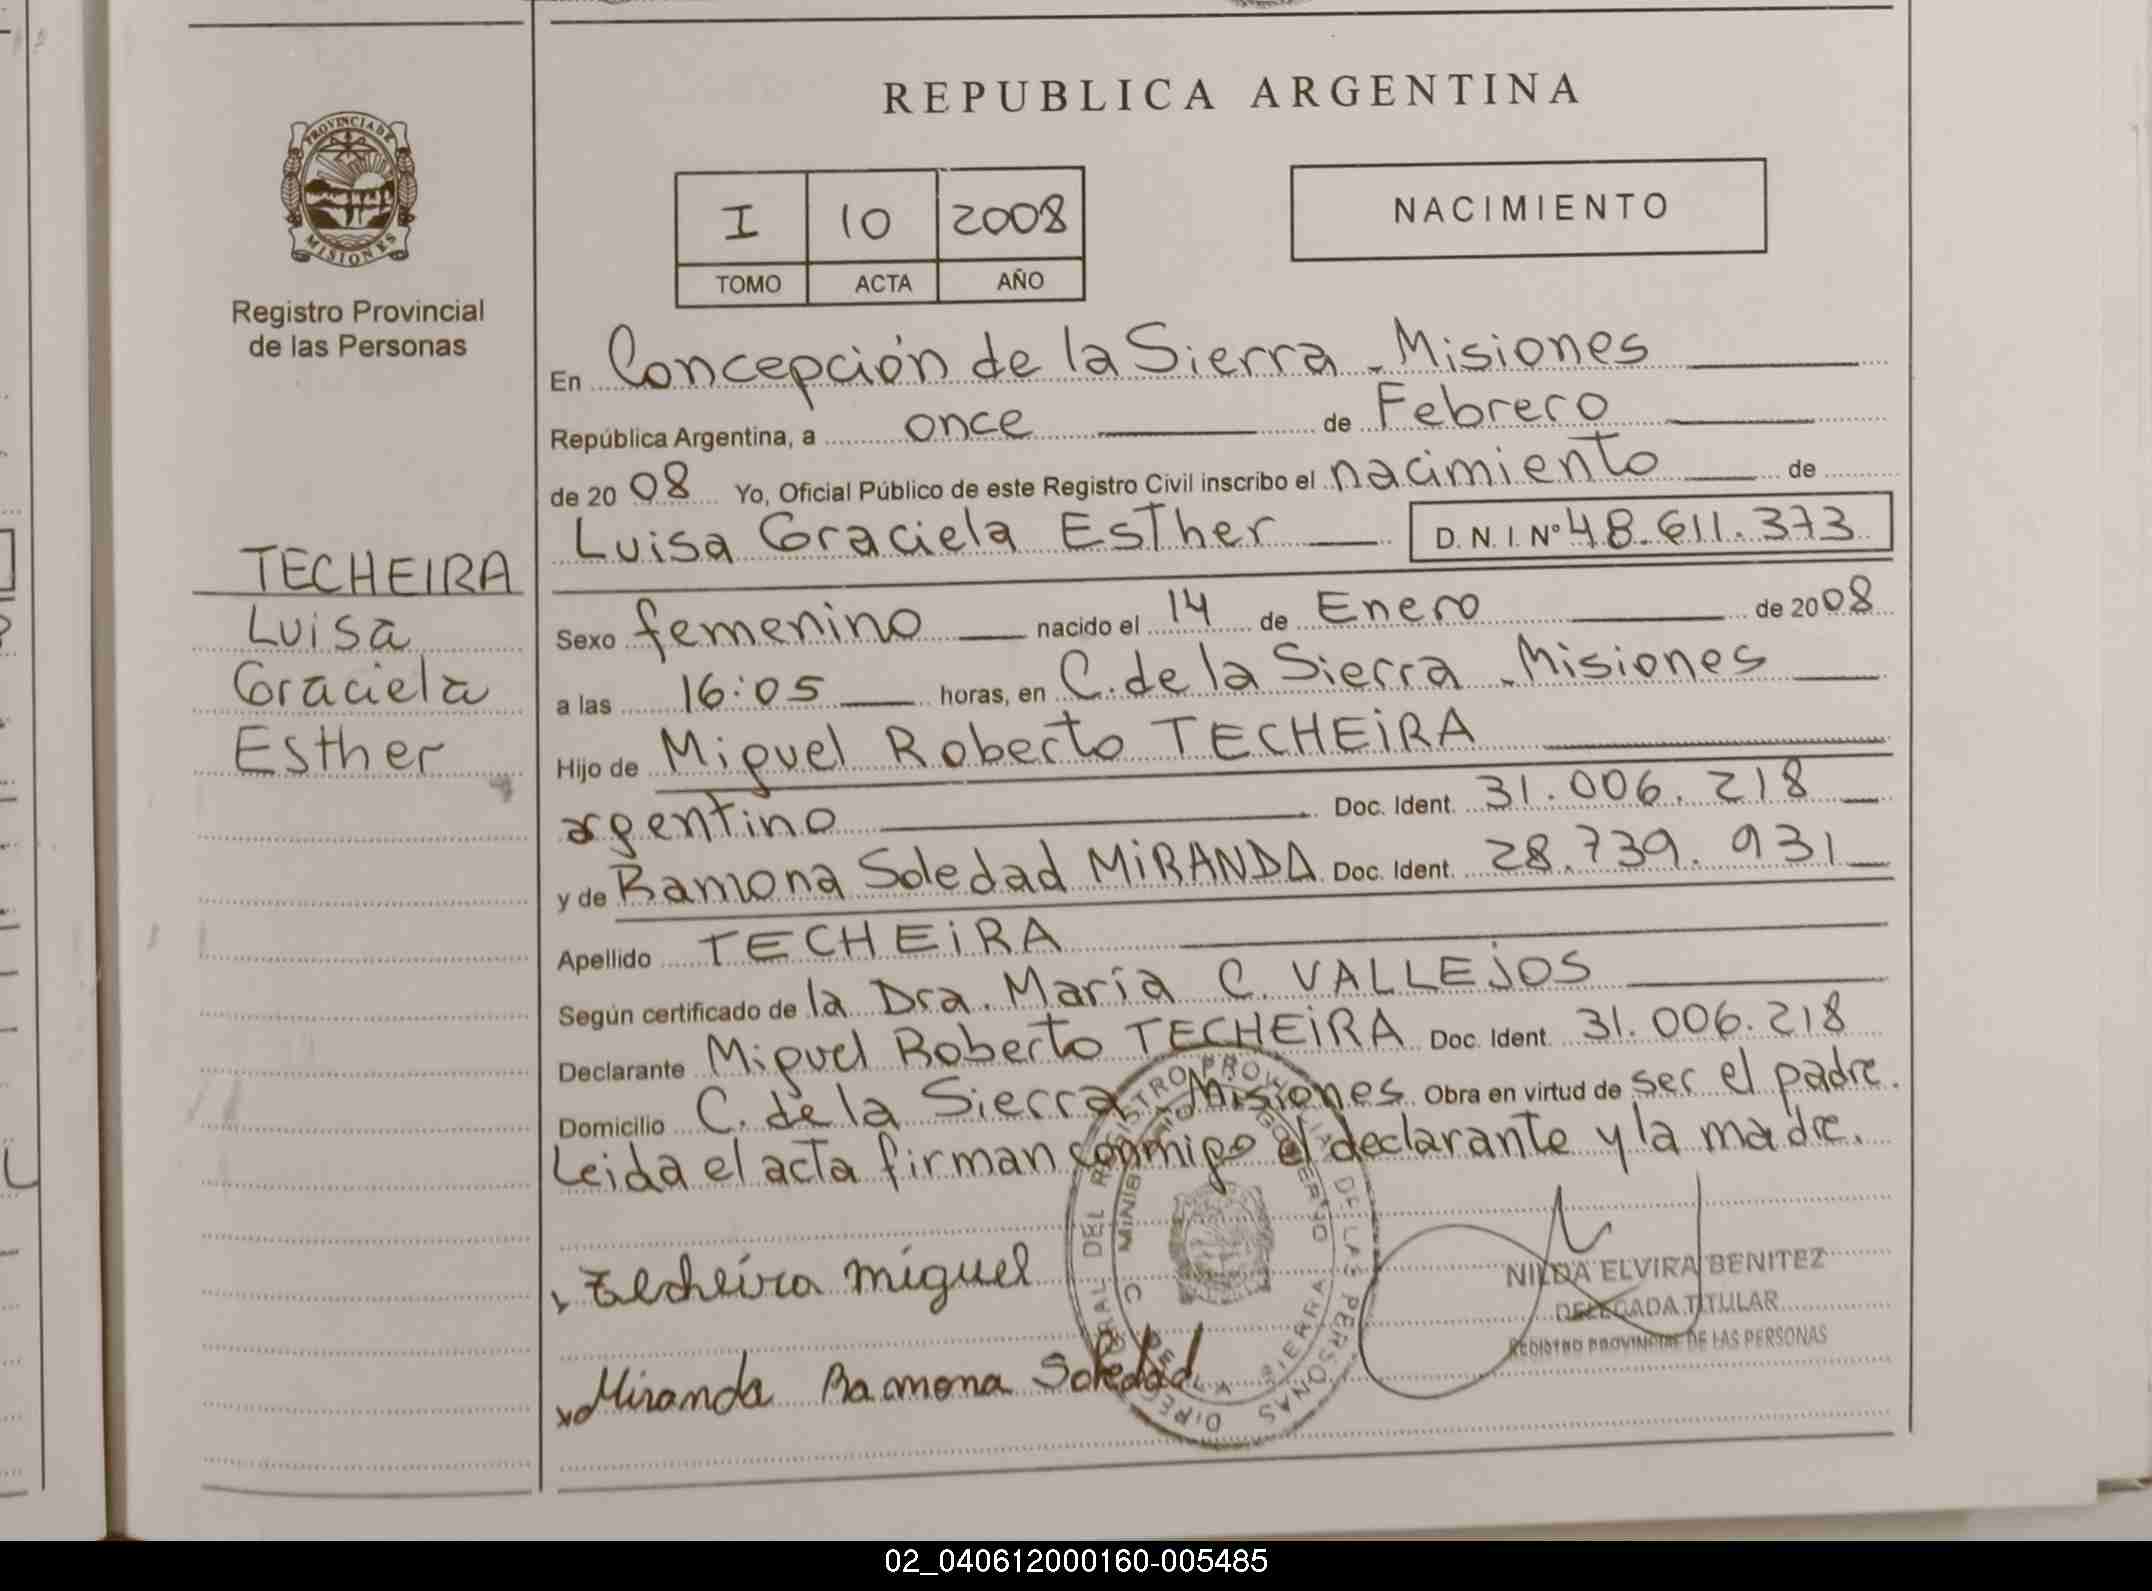 REPUBLICA ARGENTINA
PROVINCIA DE
MISIONES
Registro Provincial
de las Personas
I 10 2008
TOMO ACTA AÑO
NACIMIENTO
TECHEIRA
Luisa
Graciela
Esther
En Concepción de la Sierra - Misiones
República Argentina, a once de Febrero
de 20 08 Yo, Oficial Público de este Registro Civil inscribo el nacimiento de
Luisa Graciela Esther D. N. I. Nº 48.611.373
Sexo femenino nacido el 14 de Enero de 20 08
a las 16:05 horas, en C. de la Sierra - Misiones
Hijo de Miguel Roberto TECHEIRA
argentino Doc. Ident. 31.006.218
y de Ramona Soledad MIRANDA Doc. Ident. 28.739.931
Apellido TECHEIRA
Según certificado de la Dra. María C. VALLEJOS
Declarante Miguel Roberto TECHEIRA Doc. Ident. 31.006.218
Domicilio C. de la Sierra - Misiones Obra en virtud de ser el padre.
Leida el acta firman conmigo el declarante y la madre.
Techeira miguel
Miranda Ramona Soledad
NILDA ELVIRA BENITEZ
DELEGADA TITULAR
REGISTRO PROVINCIAL DE LAS PERSONAS
02_040612000160-005485